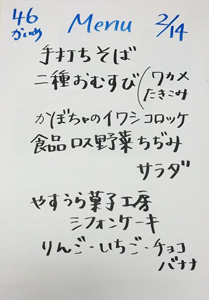 46 Menu 2/14
がいめ
手打ちそば
二種おむすび(ワカメ
たきこみ
かぼちゃのイワシコロッケ
食品ロス野菜ちぢみ
サラダ
やすうら菓子工房
シフォンケーキ
りんご・いちご・チョコ
バナナ